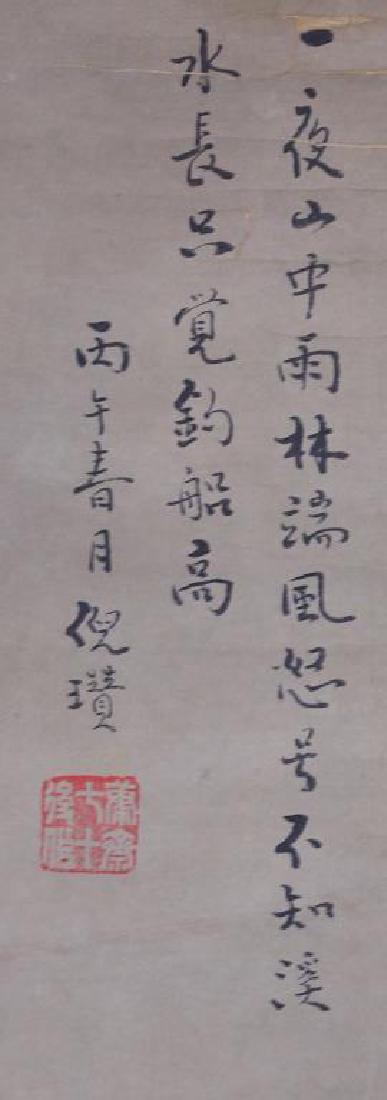 一夜山中雨林端風怒号不知溪
水長只覚釣船高
丙午春月倪瓚